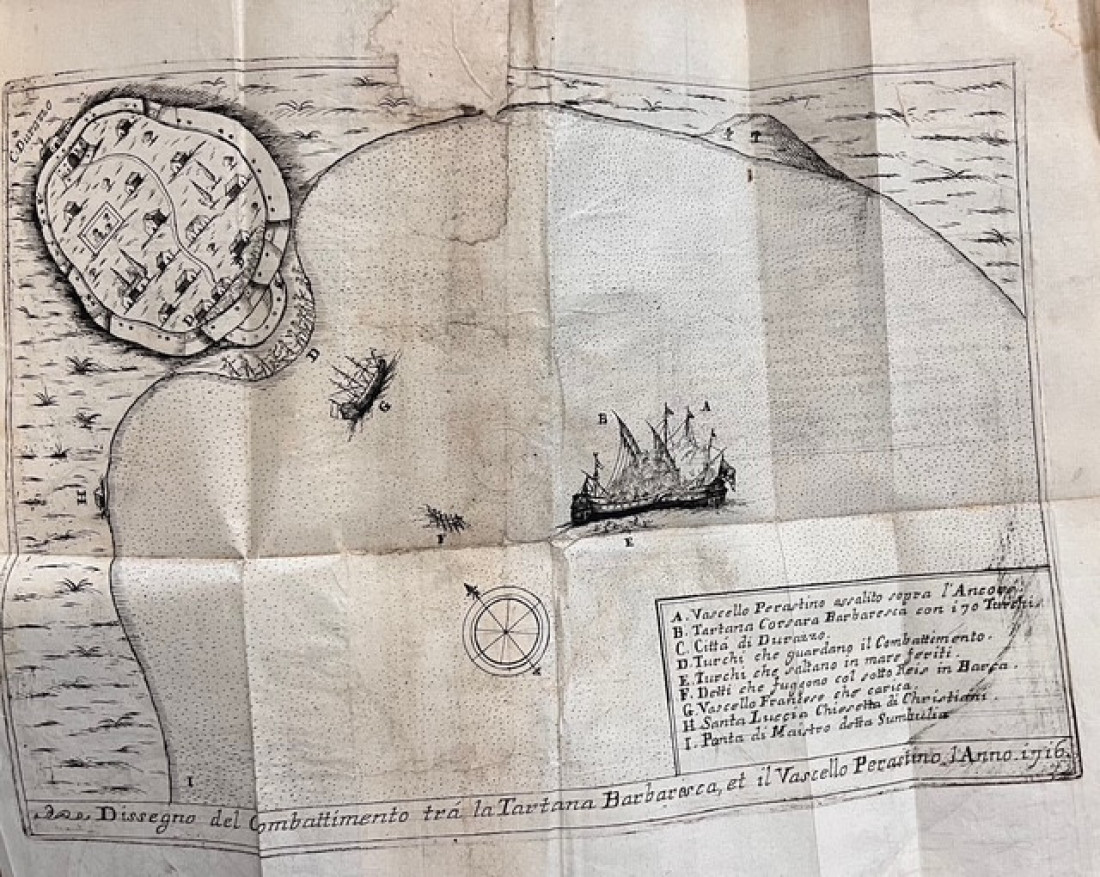 C. Durazzo
D
D
G
H
B
A
F
E
I
A. Vascello Perastino assalito sopra l'Ancore.
B. Tartana Corsara Barbaresca con 170 Turchi.
C. Cittá di Durazzo.
D. Turchi che guardano il Combattimento.
E. Turchi che saltano in mare feriti.
F. Detti che fuggono col sotto Reis in Barca.
G. Vascello Franzese che carica.
H. Santa Luccia Chiesetta di Christiani.
I. Ponta di Maistro detta Sumbulia
Dissegno del Combattimento trá la Tartana Barbaresca, et il Vascello Perastino, l'Anno. 1716.